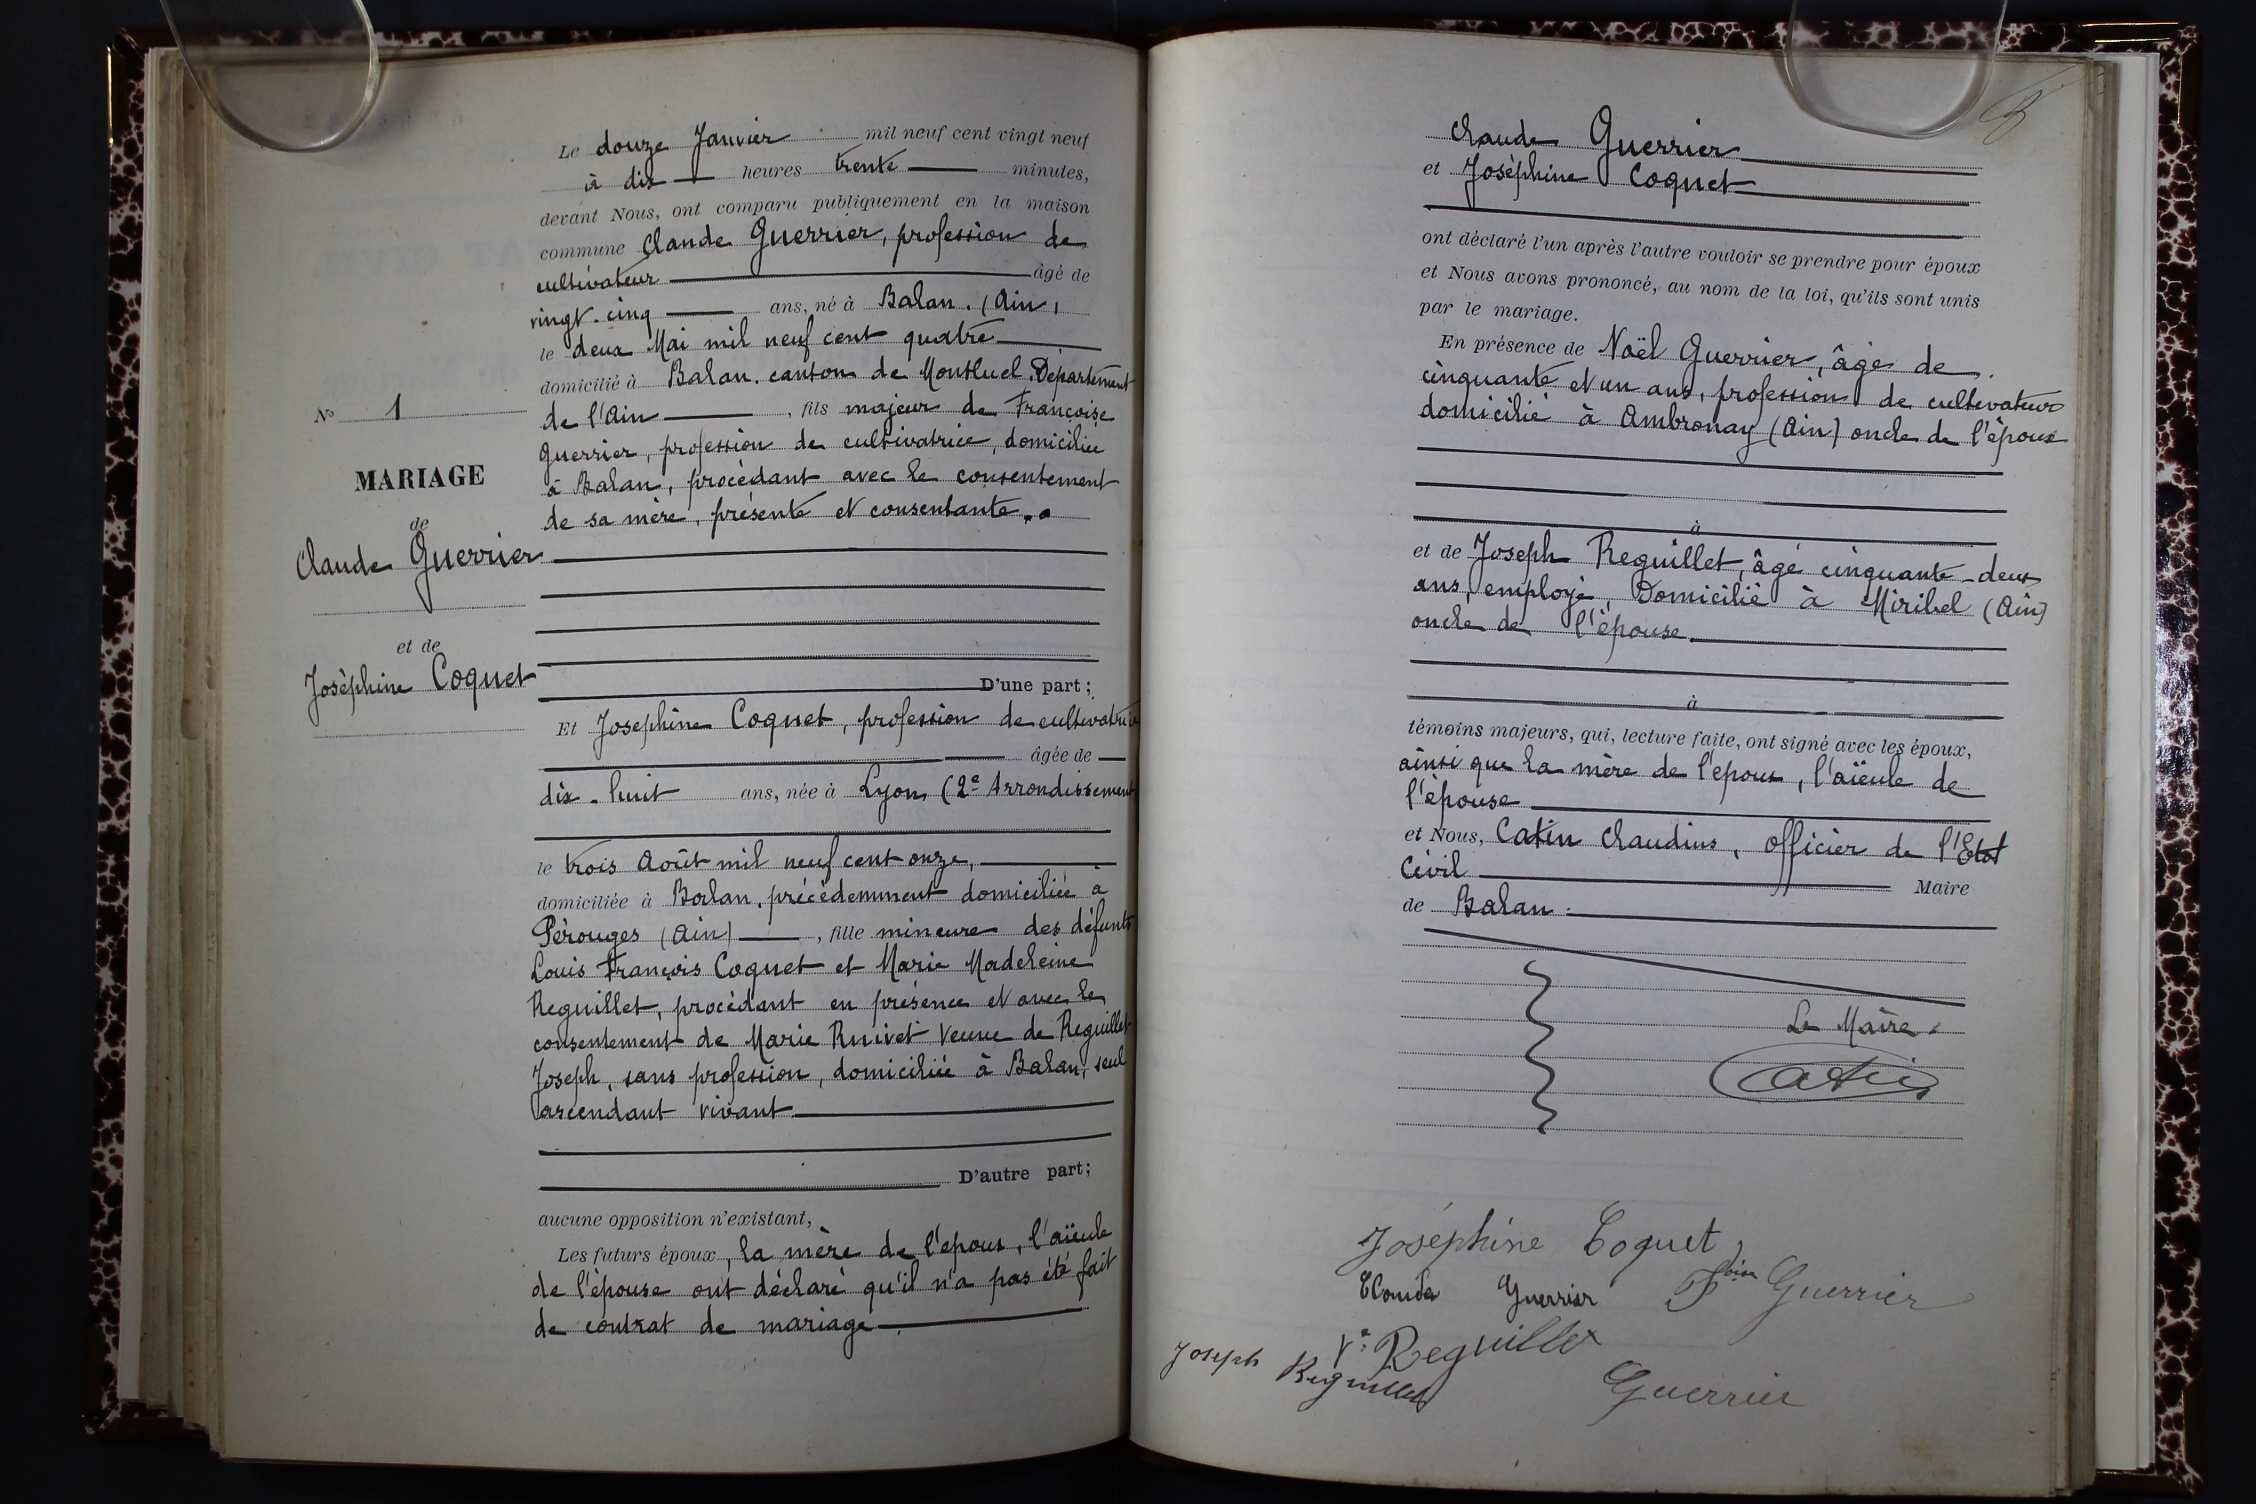 Le douze Janvier mil neuf cent vingt neuf
à dix heures trente minutes,
devant Nous, ont comparu publiquement en la maison
commune Claude Guerrier, profession de
cultivateur âgé de
vingt-cinq ans, né à Balan. (Ain)
le deux Mai mil neuf cent quatre
domicilié à Balan. canton de Montluel. Département
de l'Ain, fils majeur de Françoise
Guerrier, profession de cultivatrice, domiciliée
à Balan, procédant avec le consentement
de sa mère, présente et consentante.
N° 1
MARIAGE
de
Claude Guerrier
et de
Joséphine Coquet
D'une part;
Et Josephine Coquet, profession de cultivatrice
âgée de
dix-huit ans, née à Lyon (2e Arrondissement
le trois Août mil neuf cent onze,
domiciliée à Balan, précédemment domiciliée à
Pérouges (Ain), fille mineure des défunts
Louis François Coquet et Marie Madeleine
Reguillet, procédant en présence et avec le
consentement de Marie Ruivet Veuve de Reguillet
Joseph, sans profession, domiciliée à Balan, seul
ascendant vivant
D'autre part;
aucune opposition n'existant,
Les futurs époux, la mère de l'époux, l'aïeule
de l'épouse ont déclaré qu'il n'a pas été fait
de contrat de mariage
Claude Guerrier
et Joséphine Coquet
ont déclaré l'un après l'autre vouloir se prendre pour époux
et Nous avons prononcé, au nom de la loi, qu'ils sont unis
par le mariage.
En présence de Noël Guerrier, âgé de
cinquante et un ans, profession de cultivateur
domicilié à Ambronay (Ain) oncle de l'époux
à
et de Joseph Reguillet, âgé cinquante-deux
ans, employé, Domicilié à Miribel (Ain)
oncle de l'épouse
à
témoins majeurs, qui, lecture faite, ont signé avec les époux,
ainsi que la mère de l'époux, l'aïeule de
l'épouse
et Nous, Catin Claudius, officier de l'Etat
Civil Maire
de Balan.
Le Maire.
Catin
Joséphine Coquet
Claude Guerrier Foise Guerrier
Ve Reguillet
Joseph Reguillet
Guerrier